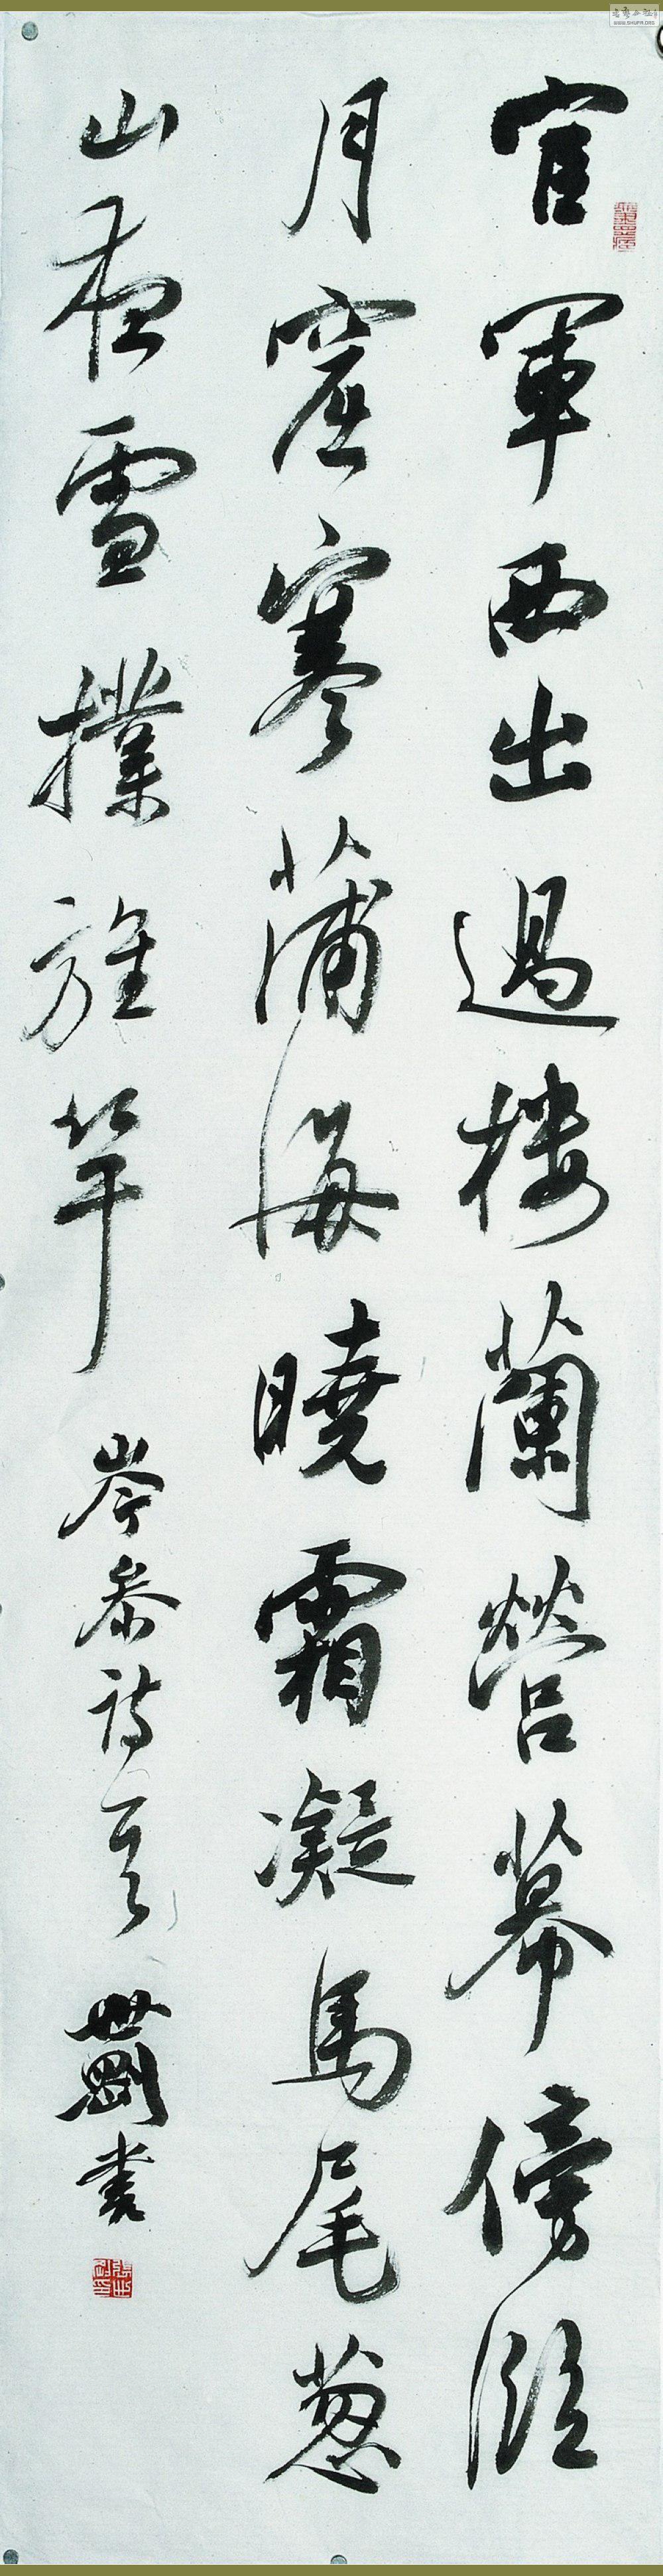 官軍西出過楼蘭營幕傍臨
月窟寒蒲海曉霜凝馬尾葱
山夜雪撲旌竿
岑參诗一首 世劉書